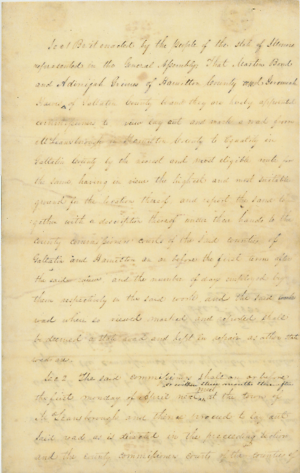 Sec 1 Be it enacted by the People of the State of Illinois
represented in the General Assembly That Martin
and County and Jeremiah
of Gallatin County and they are hereby appointed
commissioners to view lay out and mark a road from
McLeansborough in Hamilton County to Equality in
Gallatin County by the nearest and most eligible route
the same having in view the highest and most suitable
ground for the location thereof and report the same to
gether with a description thereof under their hands to the
County Commissioners courts of the said counties of
Gallatin and Hamilton on or before the first
and the number of days employed by
them respectively in the said work And the said
road when so viewed marked and reported shall
be deemed a State road and kept in repair as other state
roads are
Sec 2 The said commissioners shall on or before
within three months thereafter
the first monday of next meet at the town of
McLeansborough and then proceed to lay out
said road as is directed in the preceeding section
and the county commissioners courts of the counties of